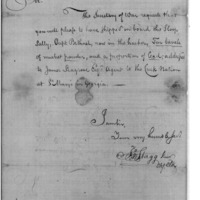 Sir
The Secretary of War requests that
you will please to have shipped on board the Sloop
Sally, Capt. , now in the harbor, Ten barrels
of musket powder, and a proportion of lead, addressed
to James Seagrove Esqr Agent to the Creek Nation
at St Marys in Georgia.
I am Sir,
Your very humble Servt
Jno Stagg Jr